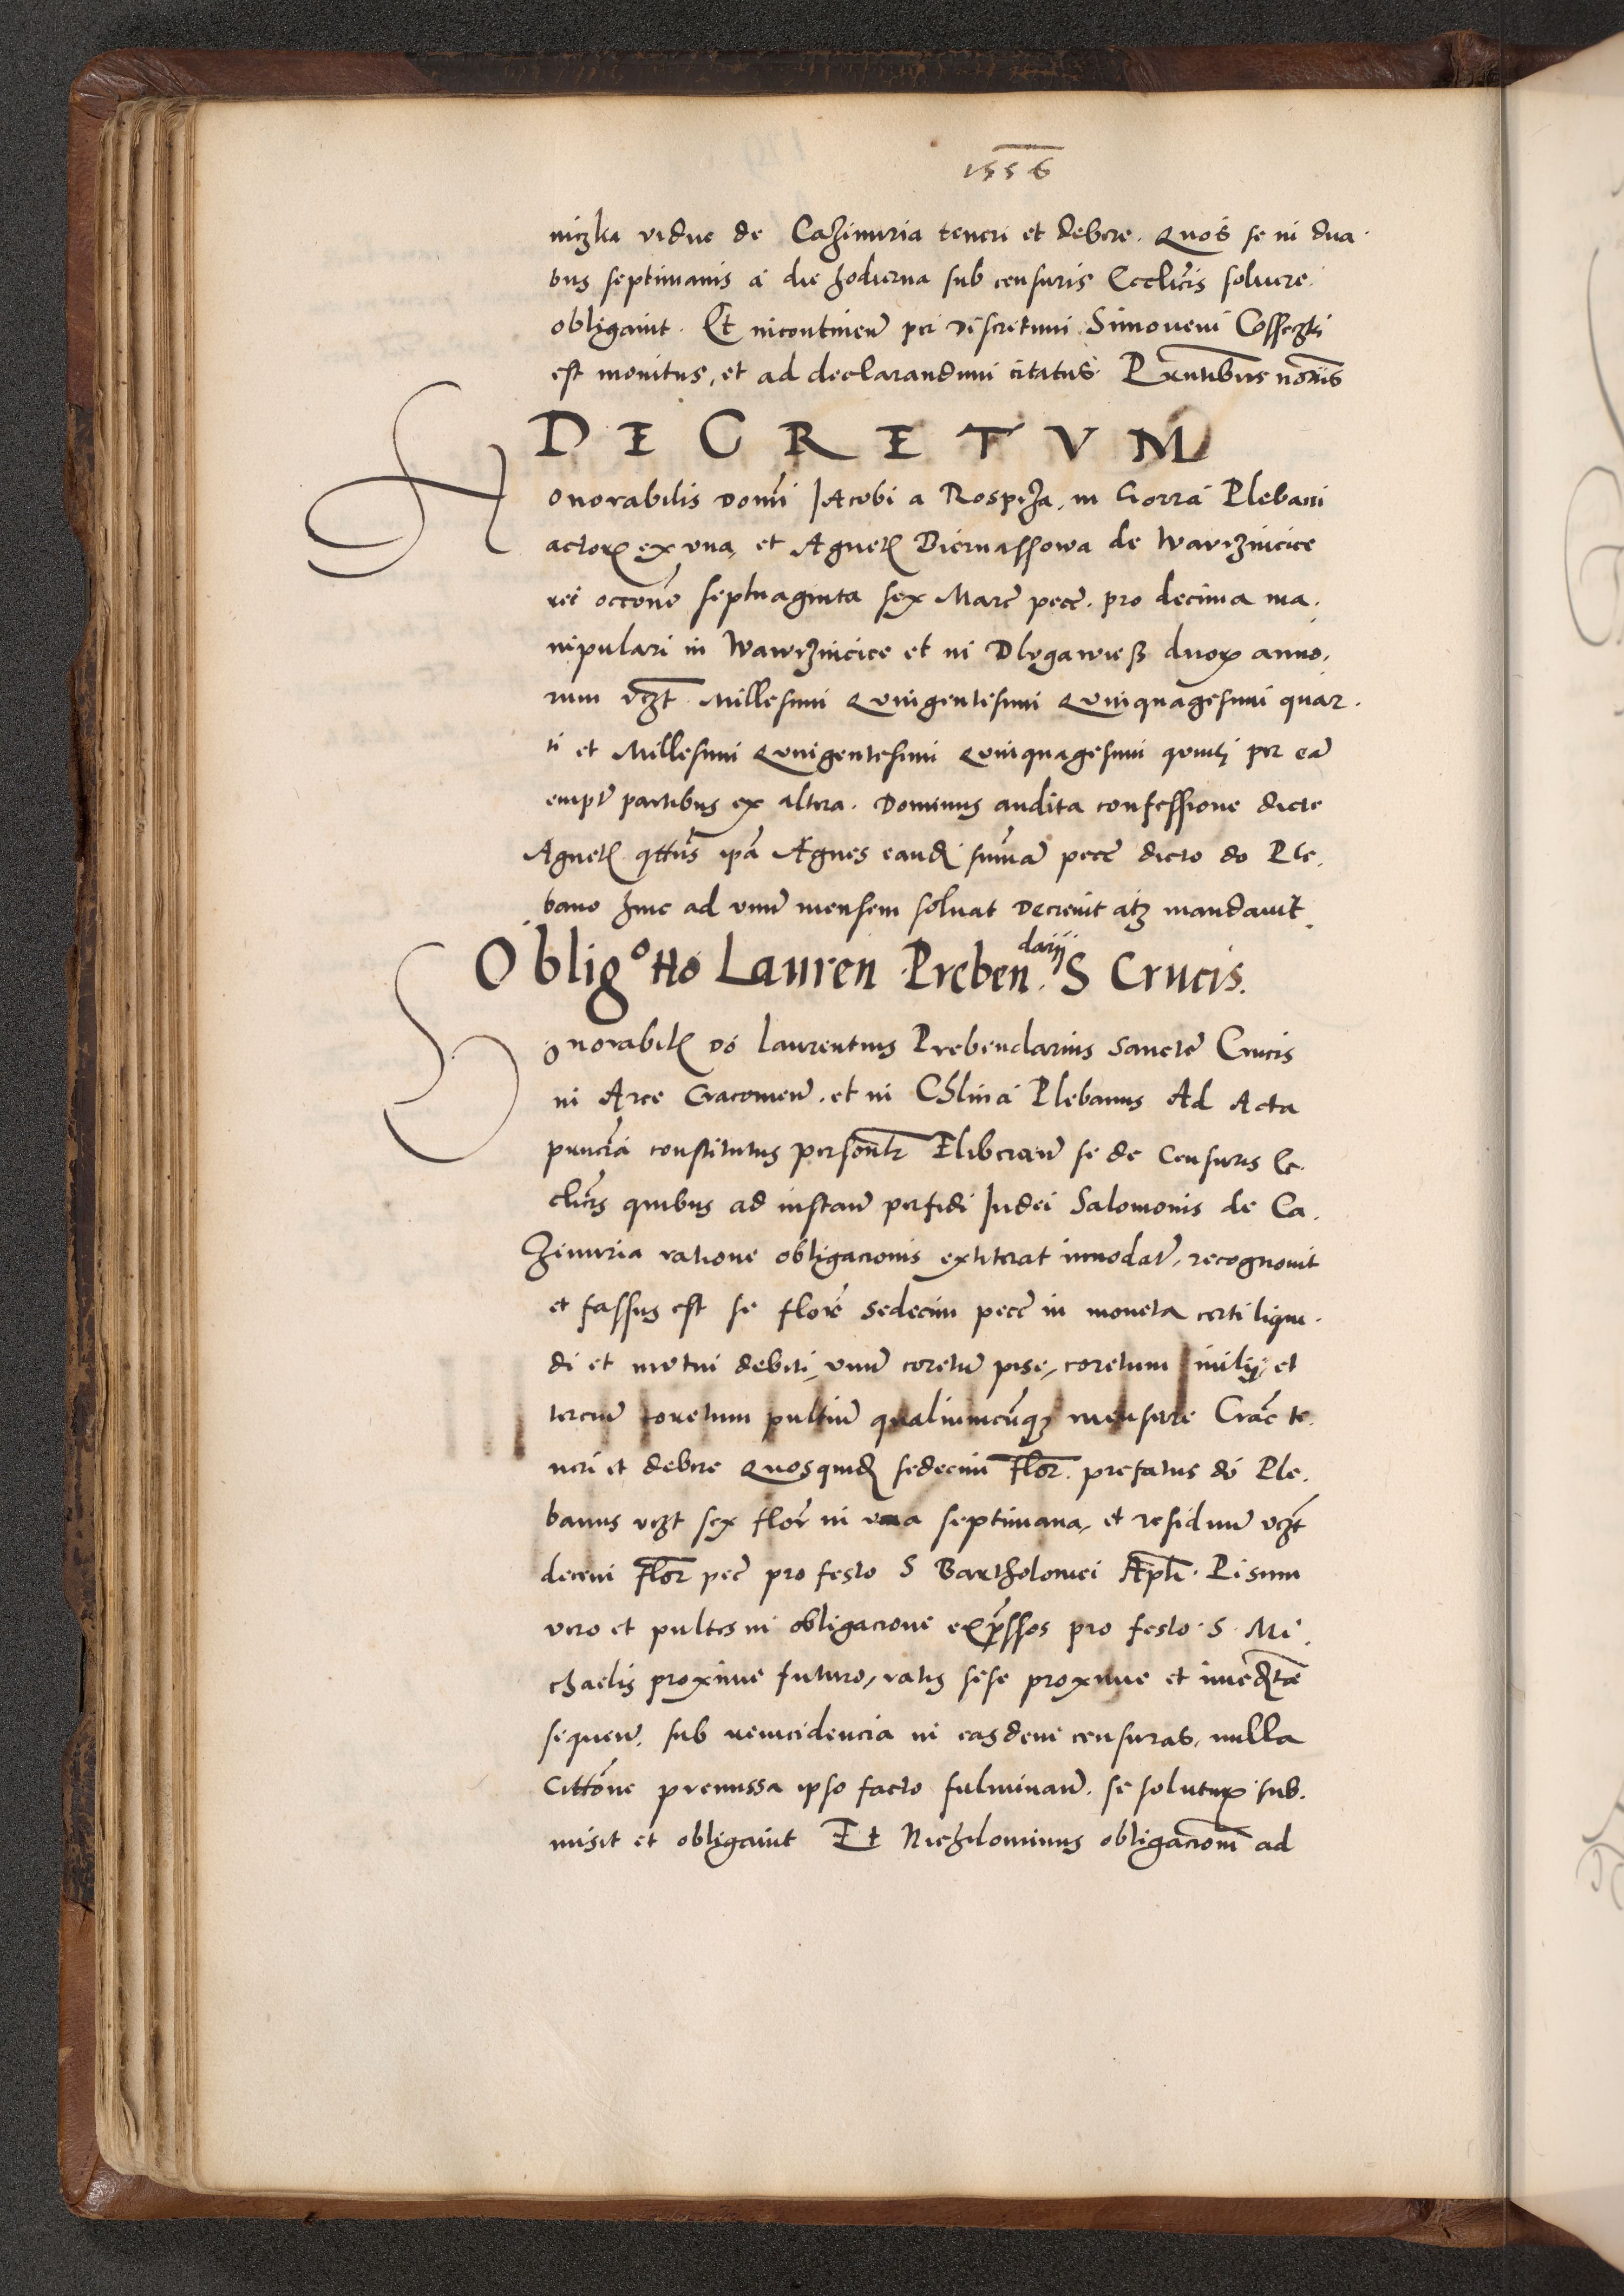 1556
niczka vidue de Cazimiria teneri et debere. Quos se in dua-
bus septimanis a die hodierna sub censuris Eccl̃icis soluere
obligauit. Et incontineñ per Discretum Simonem Cossezki
est monitus, et ad declarandum citatus Pñtibus notarijs
DECRETVM
Honorabilis Domĩ Jacobi a Rospiza, in Gorra Plebani
actoris ex vna, et Agnetis Biernassowa de Wawrzinicice
rei occõne septuaginta sex Març peç. pro decima ma-
nipulari in Wawrzinicice et in Dlvgawiesz duorum anno-
rum vczt Millesimi Quingentesimi Quinquagesimi quar-
ti et Millesimi Quingentesimi Quinquagesimi quinti per eã
empte partibus ex altera. Dominus audita confessione dicte
Agnetis q̃ttus ip̃a Agnes eandem sum̃ã peç dicto do Ple-
bano hinc ad vnũ mensem soluat Decreuit atq mandauit.
Oblig° Ho Lauren Preben.darij S Crucis.
Honorabilis Dõ Laurentius Prebendarius Sancte Crucis
in Arce Cracouieñ. et in Chlina Plebanus Ad Acta
pñcia constitutus personlr Eliberañ se de Censuris Ec-
cl̃icis quibus ad instanc perfidi Judei Salomonis de Ca-
zimiria ratione obligacionis extiterat innodaẽ, recognouit
et fassus est se florẽ Sedecim peç in moneta certi liqui-
di et mutui debiti, vnũ coretũ pise, coretum milij et
terciũ coretum pultiũ qualiumcunq mensure Crac te-
neri et debere Quosquidem sedecim Flor. prefatus dõ Ple-
banus vczt sex flor̃ in vna septimana, et residuũ vczt
decem Flor peç pro festo S Bartholomei Apl̃i. Pisum
vero et pultes in obligacione exp̃ssos pro festo S. Mi-
chaelis proxime futuro, ratis sese proxime et imedtãe
sequeñ. sub reincidencia in easdem censuras, nulla
Cittõne premissa ipso facto fulminañ. se soluturum sub-
misit et obligauit Et Nichilominus obligacionem ad